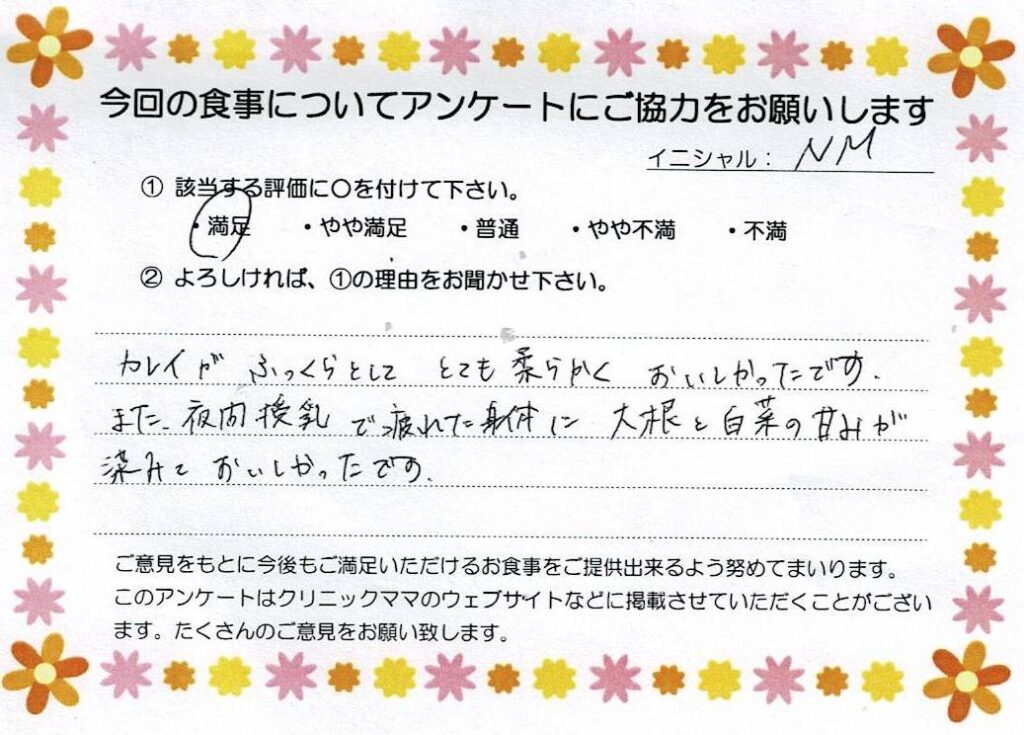 今回の食事についてアンケートにご協力をお願いします
イニシャル： NM
① 該当する評価に〇を付けて下さい。
・満足 ・やや満足 ・普通 ・やや不満 ・不満
② よろしければ、①の理由をお聞かせ下さい。
カレイが ふっくらとして とても柔らかく おいしかったです.
また、夜間授乳で疲れた身体に 大根と白菜の甘みが
染みて おいしかったです.
ご意見をもとに今後もご満足いただけるお食事をご提供出来るよう努めてまいります。
このアンケートはクリニックママのウェブサイトなどに掲載させていただくことがござい
ます。たくさんのご意見をお願い致します。